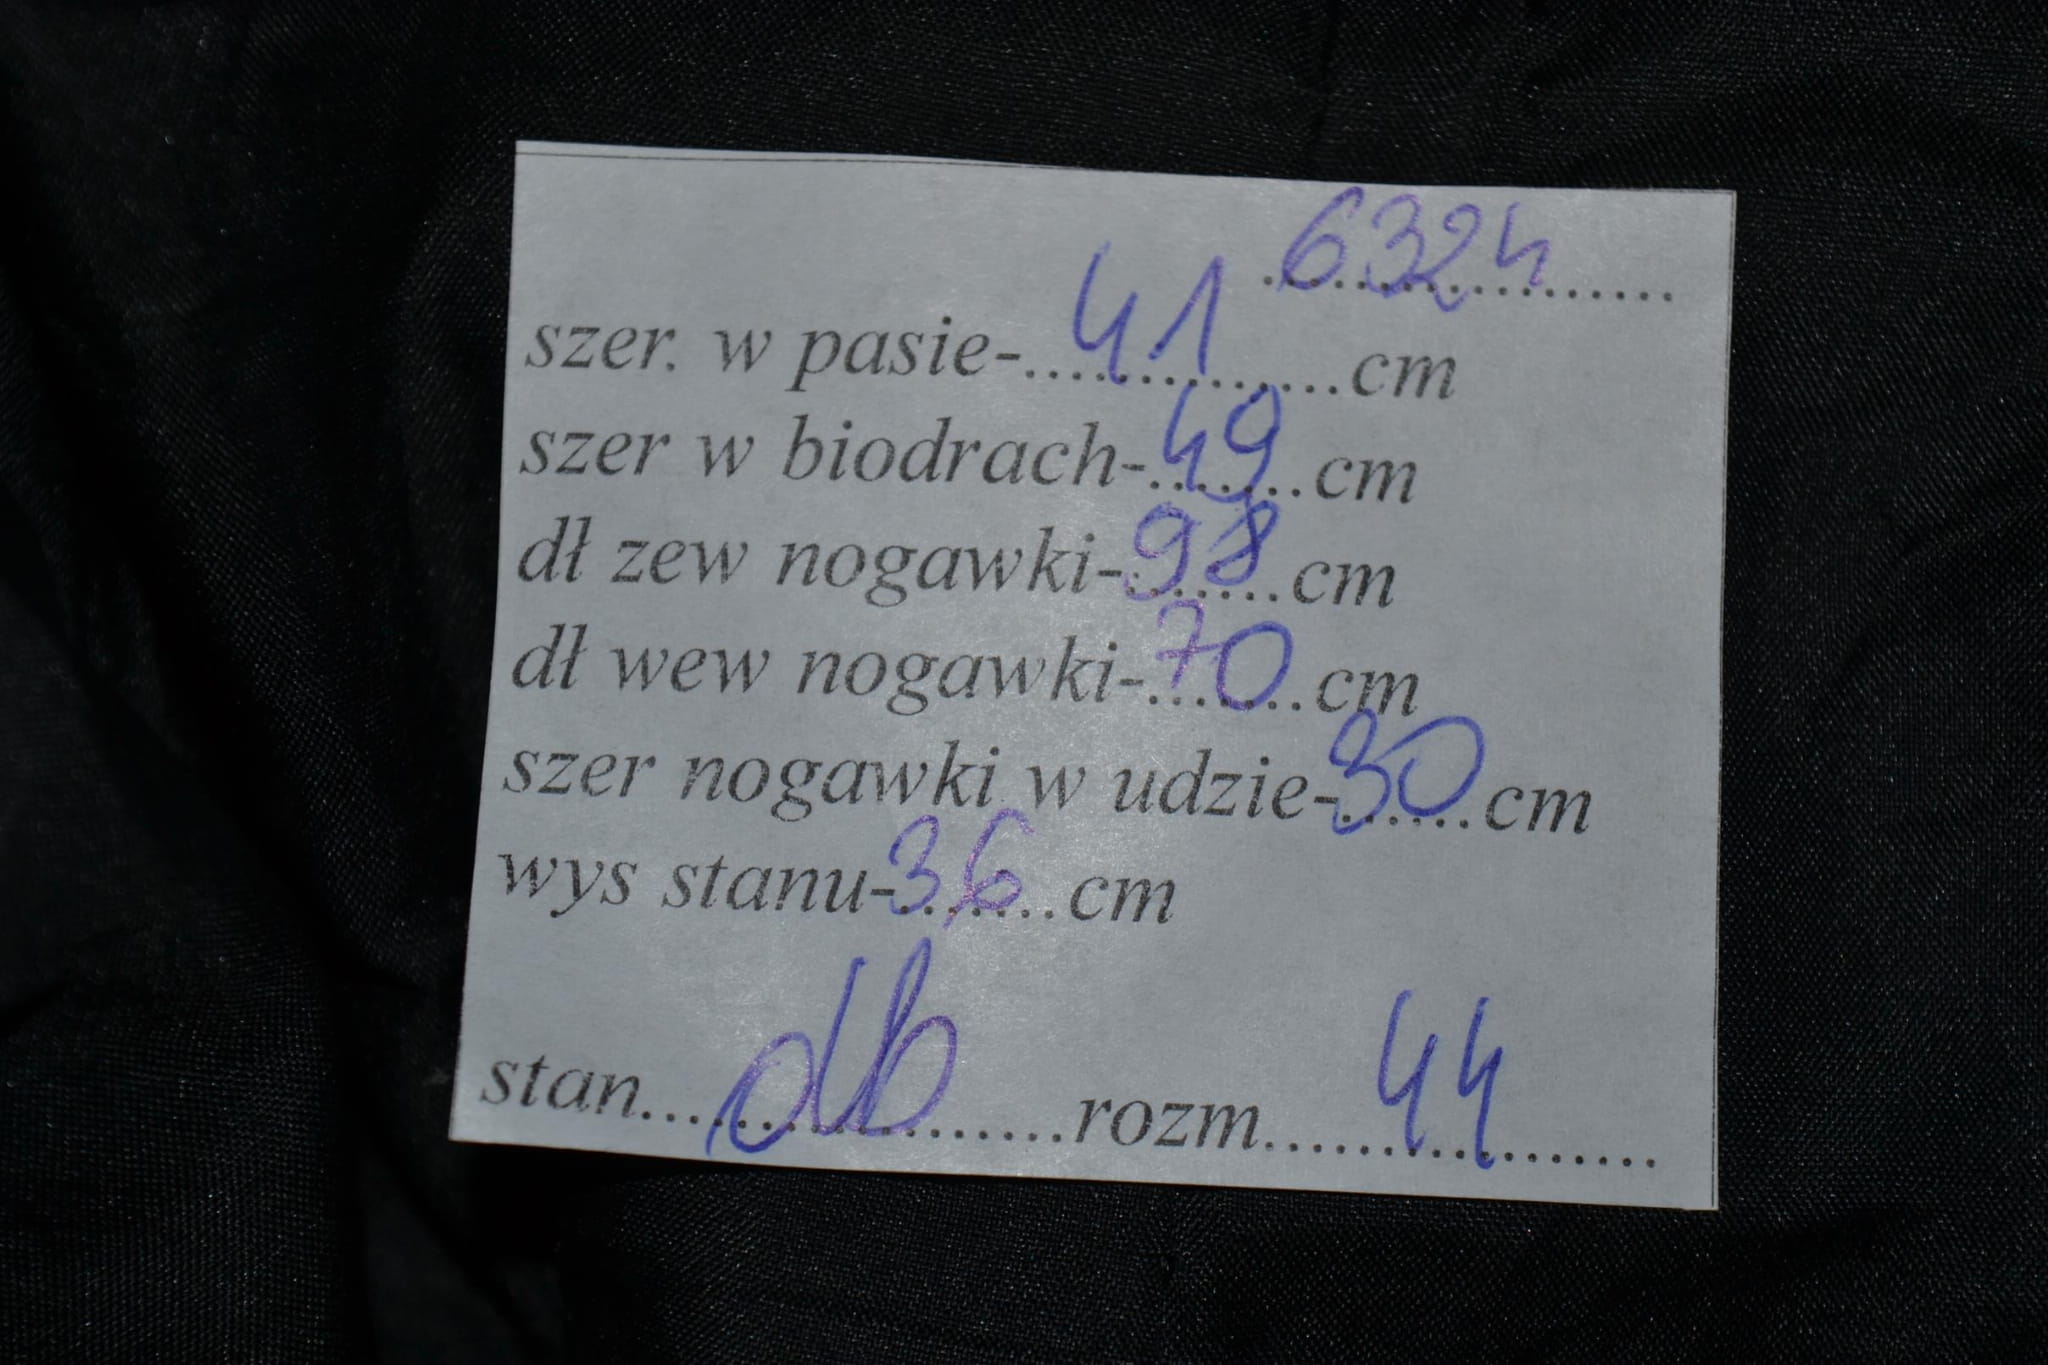 6324
szer. w pasie-41 cm
szer w biodrach-49 cm
dł zew nogawki-98 cm
dł wew nogawki-70 cm
szer nogawki w udzie-30 cm
wys stanu-36 cm
stan...db...rozm...44...